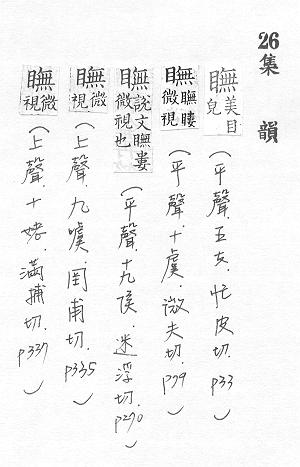 26集韻
瞴美目皃(平聲.五支.忙皮切.p33)
瞴瞴瞜微視(平聲.十虞.微夫切.p79)
瞴說文瞴婁微視也(平聲.十九侯.迷浮切.p270)
瞴微視(上聲.九噳.罔甫切.p335)
瞴微視(上聲.十姥.滿補切.p337)